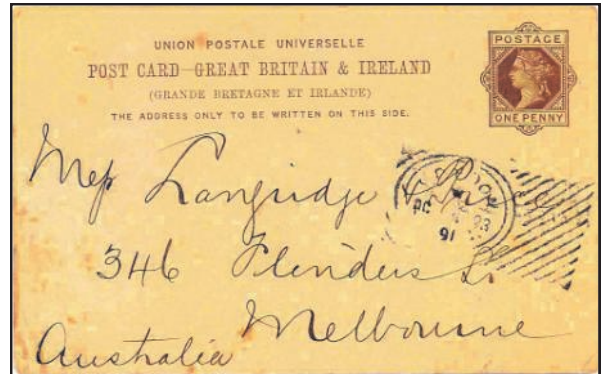 UNION POSTALE UNIVERSELLE
POST CARD—GREAT BRITAIN & IRELAND
(GRANDE BRETAGNE ET IRLANDE)
THE ADDRESS ONLY TO BE WRITTEN ON THIS SIDE.
POSTAGE
ONE PENNY
Langridge
91
346 Flinders St
Melbourne
Australia